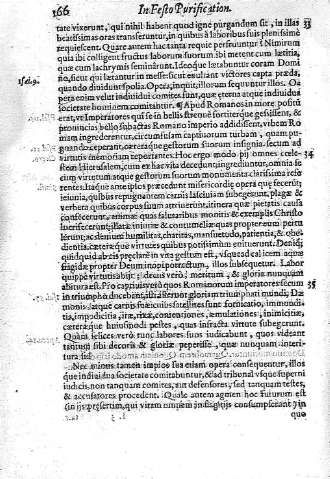 166 In Festo Purification.
tate vixerunt, qui nihil habent quod igne purgandum sit, in illas 33
beatissimas oras transferuntur, in quibus à laboribus suis plenissimè
requiescent. Quare autem hac tanta requie perfruuntur? Nimirum
quia ibi colligent fructus laborum suorum ibi metent cum lætitia,
quæ cum lachrymis seminârunt. Ideoque lætabuntur coram Domi
Isa. 9. no, sicut qui lætantur in messe sicut exultant victores capta præda,
quando dividunt spolia. Opera, inquit, illorum sequuntur illos. Om
nia enim velut individui comites sunt, quæ æterna atque individua
societate hominem comitantur. ¶ Apud Romanos in more positũ
erat, ve Imperatores qui se in bellis strenuè fortiterque gessissent, &
provincias bello subactas Romano imperio addidissent, urbem Ro
mam ingrederentur, circumfusam captivorum turbam, quam pu-
gnando ceperant, cæteraque gestorum suorum insignia secum ad
virtutis memoriam reportantes. Hoc ergo modo pij omnes cæle- 34
stem Ierusalem, cum ex hac vita decedunt, ingrediuntur, omnia se
cum virtutum atque gestorum suorum monumenta clarissima refe
rentes. Itaque ante ipsos præcedunt misericordiæ opera quæ fecerũt,
ieiunia, quibus repugnantem carnis lasciviam subegerunt, plagæ &
verbera quibus corpus suum attriverunt, itinera quæ pietatis causa
confecerunt, animæ quas salutaribus monitis & exemplis Christo
lucrifecerunt, illatæ iniuriæ & contumeliæ quas propter eum pertu
lerunt; ac demum humilitas, charitas, mansuetudo, patientia, & obe
dientia, cæteræque virtutes quibus potissimum enituerunt. Deniq;
quidquid ab eis præclarè in vita gestum est, usque ad calicem aquæ
frigidæ propter Deum inopi porrectum, illos subsequetur. Labor
quippe virtutis abijt; decus verò, meritum, & gloria nunquam
abitura est. Pro captivis verò quos Romanorum imperatores secum 35
in triumpho ducebant, isti afferunt gloriam triumphati mundi, Dæ
monis, atque carnis suæ
impudicitia, iræ, rixæ, contentiones, æmulationes, inimicitiæ,
cæteræque huiusmodi pestes, quas infracta virtute subegerunt.
Quàm felices verò tunc labores suos iudicabunt, quos videant
tantum sibi decoris & gloriæ peperisse, quæ nunquam interi-
tura sit.
Nec minus tamen impios sua etiam opera consequentur, illos
que individua societate comitabuntur, & ad tribunal usque superni
iudicis, non tanquam comites, aut defensores, sed tanquam testes,
& accusatores procedent. Quale autem agmen hoc futurum est
in ijs præsertim, qui vitam universam in flagitijs consumpserunt? in
quo